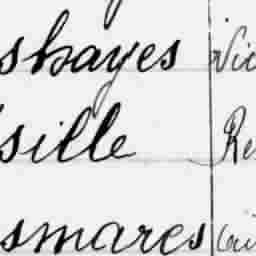 shayes Vic
sille Re
smares